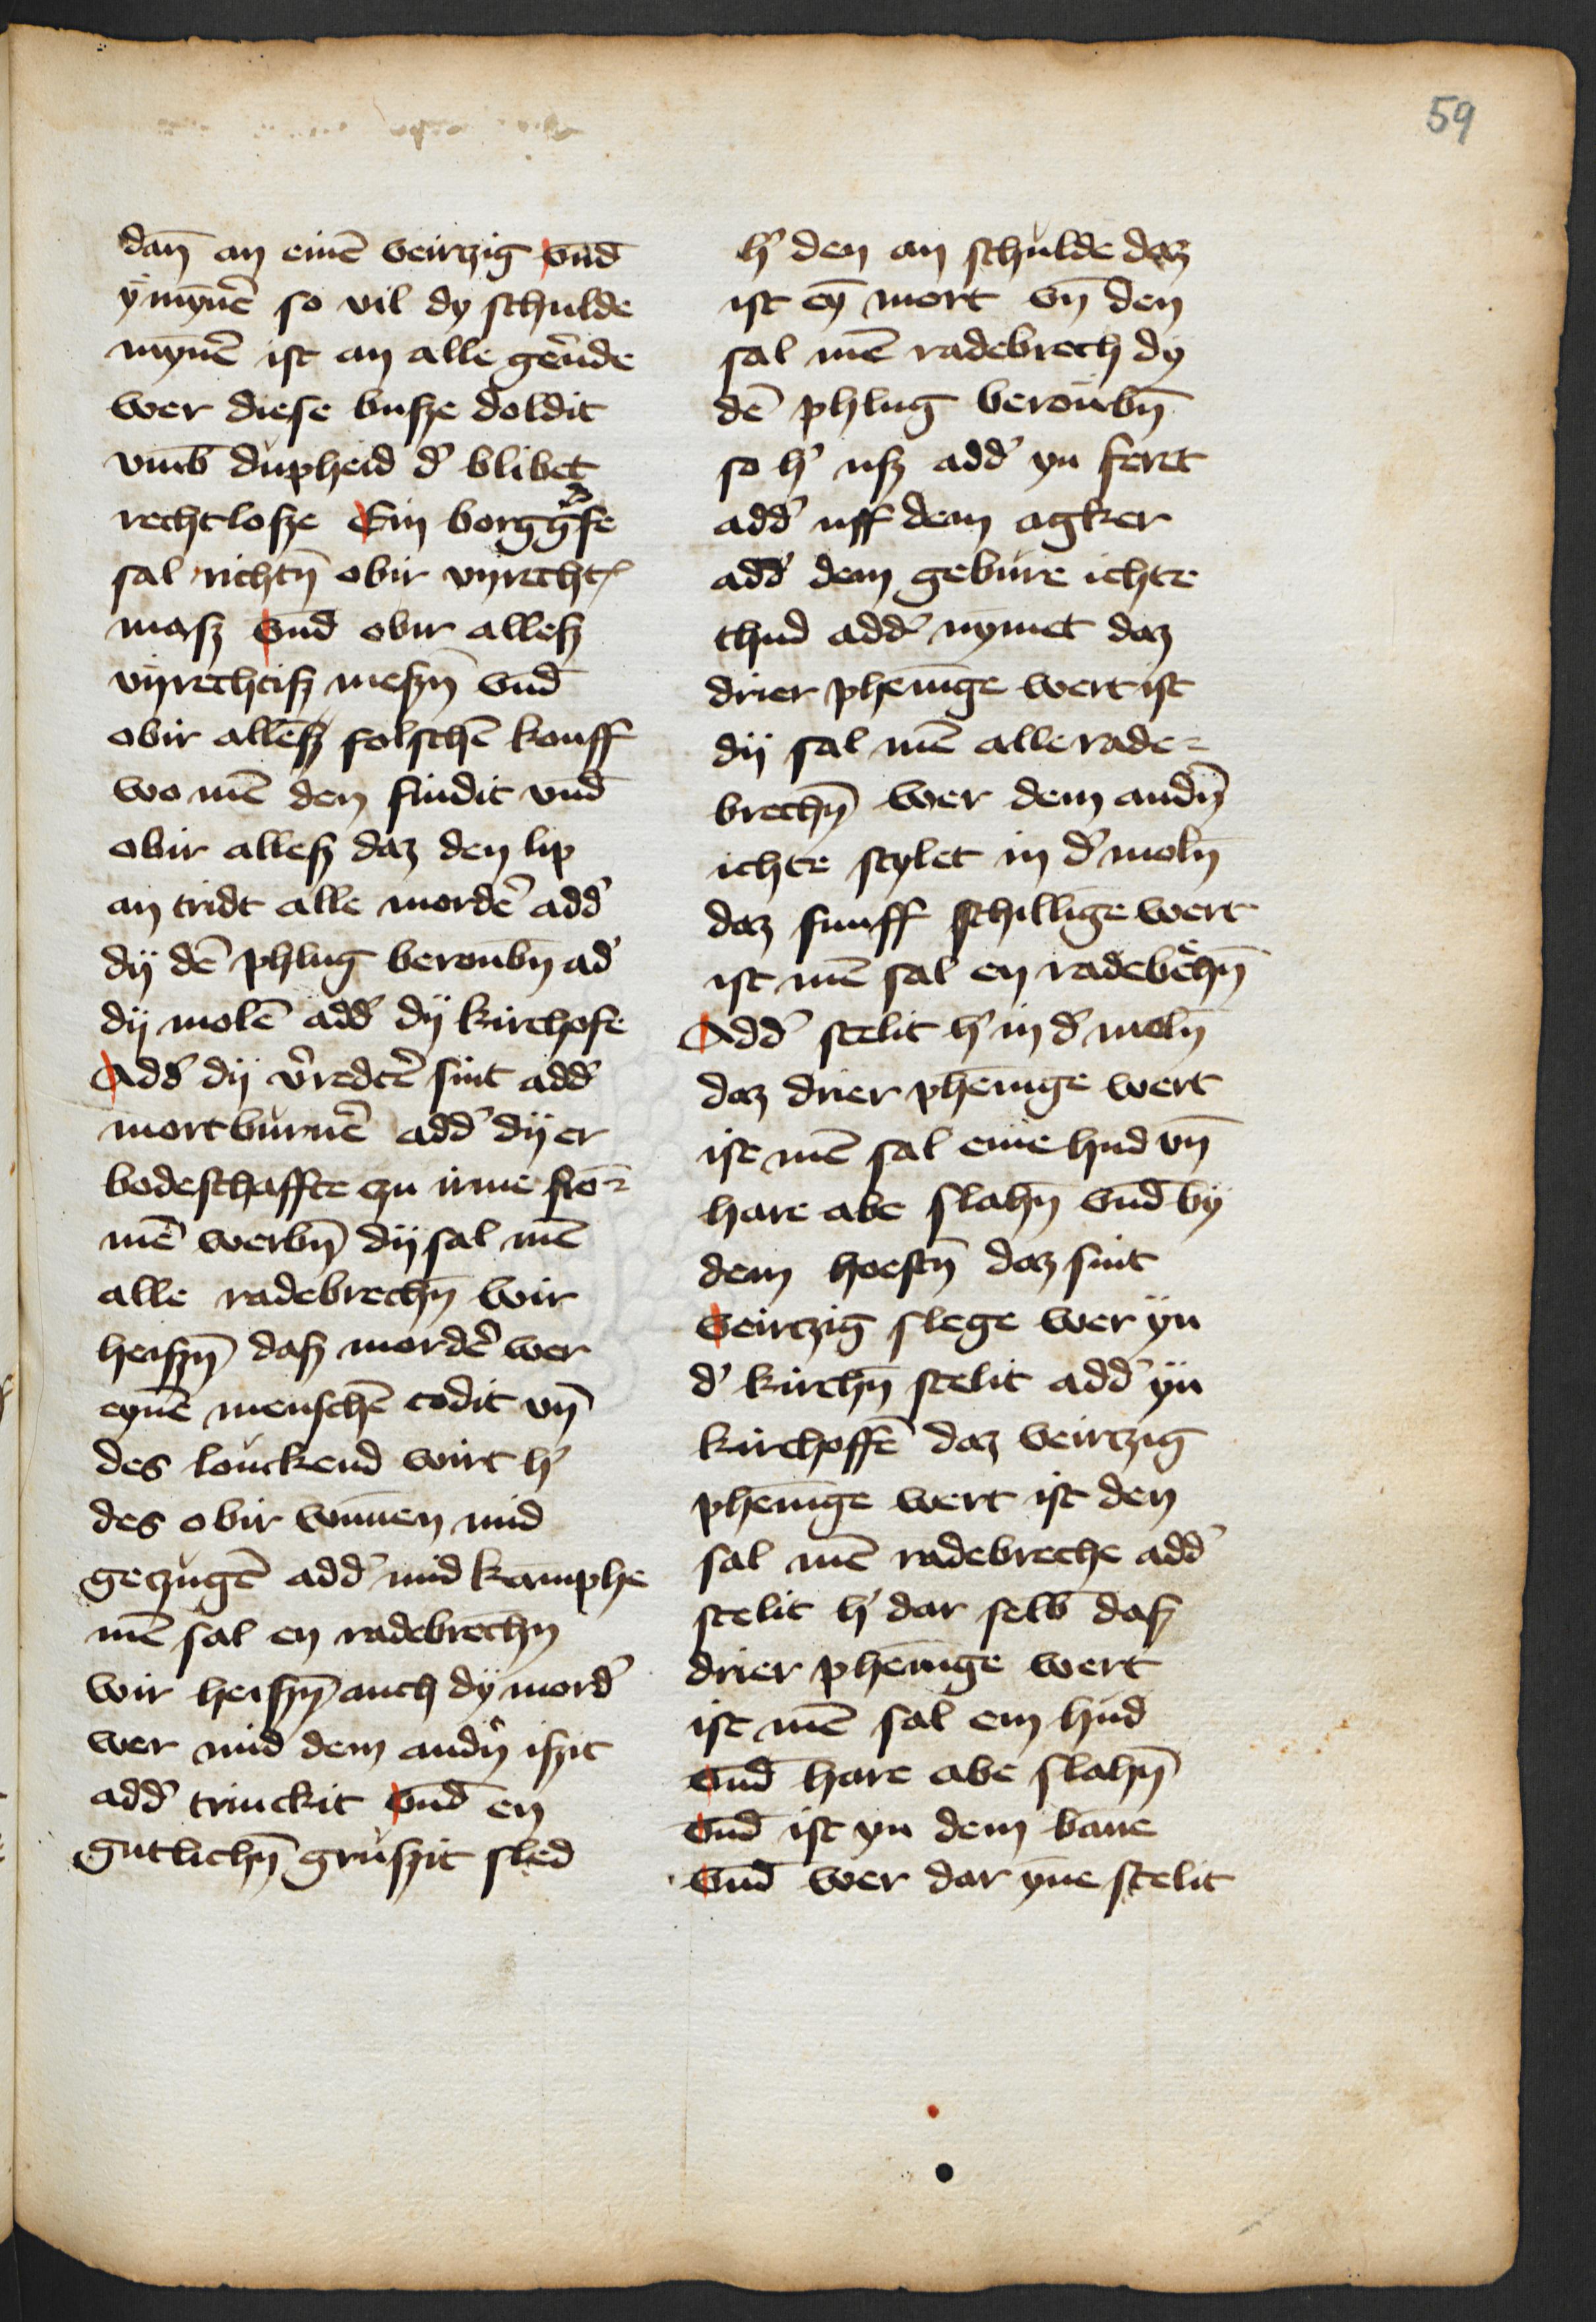 59
dan̄ an einē veirzig vnd̄
ÿmynē so vil dy schulde
mynē ist an alle gēnde
wer diese busze doldit
vmb̄ dupheid d' blibet
rechtlosze Ein borgg̾fe
sal richtn̄ obir vnrecht
masz vnd̄ obir allesz
vnrechtisz meszn̄ vnd̄
obir allesz folschē kouff
wo mē den findit vnd̄
obir allesz daz den lip
an tridt alle mordē' add'
dÿ dē phlug beroubn̄ ad'
dÿ molē add' dÿ kirchofe
Add' dÿ v'redtē' sint add'
mortburnē' add' dÿ er
bodeschaffte zu irme fro=
mē werbn̄ dÿ sal mē
alle radebrechn̄ wir
heiszn̄ dasz mordē' wer
eynē menschē todit vn̄
des louckend wirt h'
des obir wūnen mid
geczugē add' mid kamphe
mē sal en radebrechn̄
wir heiszn̄ auch dÿ mord'
wer mid dem andn̄' iszit
add' trinckit vnd̄ en
gutlichn̄ gruszit sled
h' den an schulde daz
ist eȳ mort vn̄ den
sal mē radebrech dÿ
dē phlug beroubn̄
so h' usz add' yn feret
add' uff dem agker
add' dem gebure ichte
thud add' nymet daz
drier phenīge wert ist
dÿ sal mē alle rade=
brechn̄ wer dem andn̄'
ichte stylet in d' moln̄
daz funff schillīge wert
ist mē sal en radebechn̄
Add' stelit h' in d' moln̄
daz drier phenīge wert
ist mē sal eme hud vn̄
hare abe slahn̄ vnd̄ bÿ
dem hoestn̄ daz sint
veirczig slege wer ÿn
d' kirchn̄ stelit add' ÿn
kirchoffē daz veirczig
phenīge wert ist den
sal mē radebreche add'
stelit h' dar selb̄ dasz
drier phenīge wert
ist mē sal em hud
vnd̄ hare abe slahn̄
vnd̄ ist yn dem bāne
vnd̄ wer dar ȳne stelit